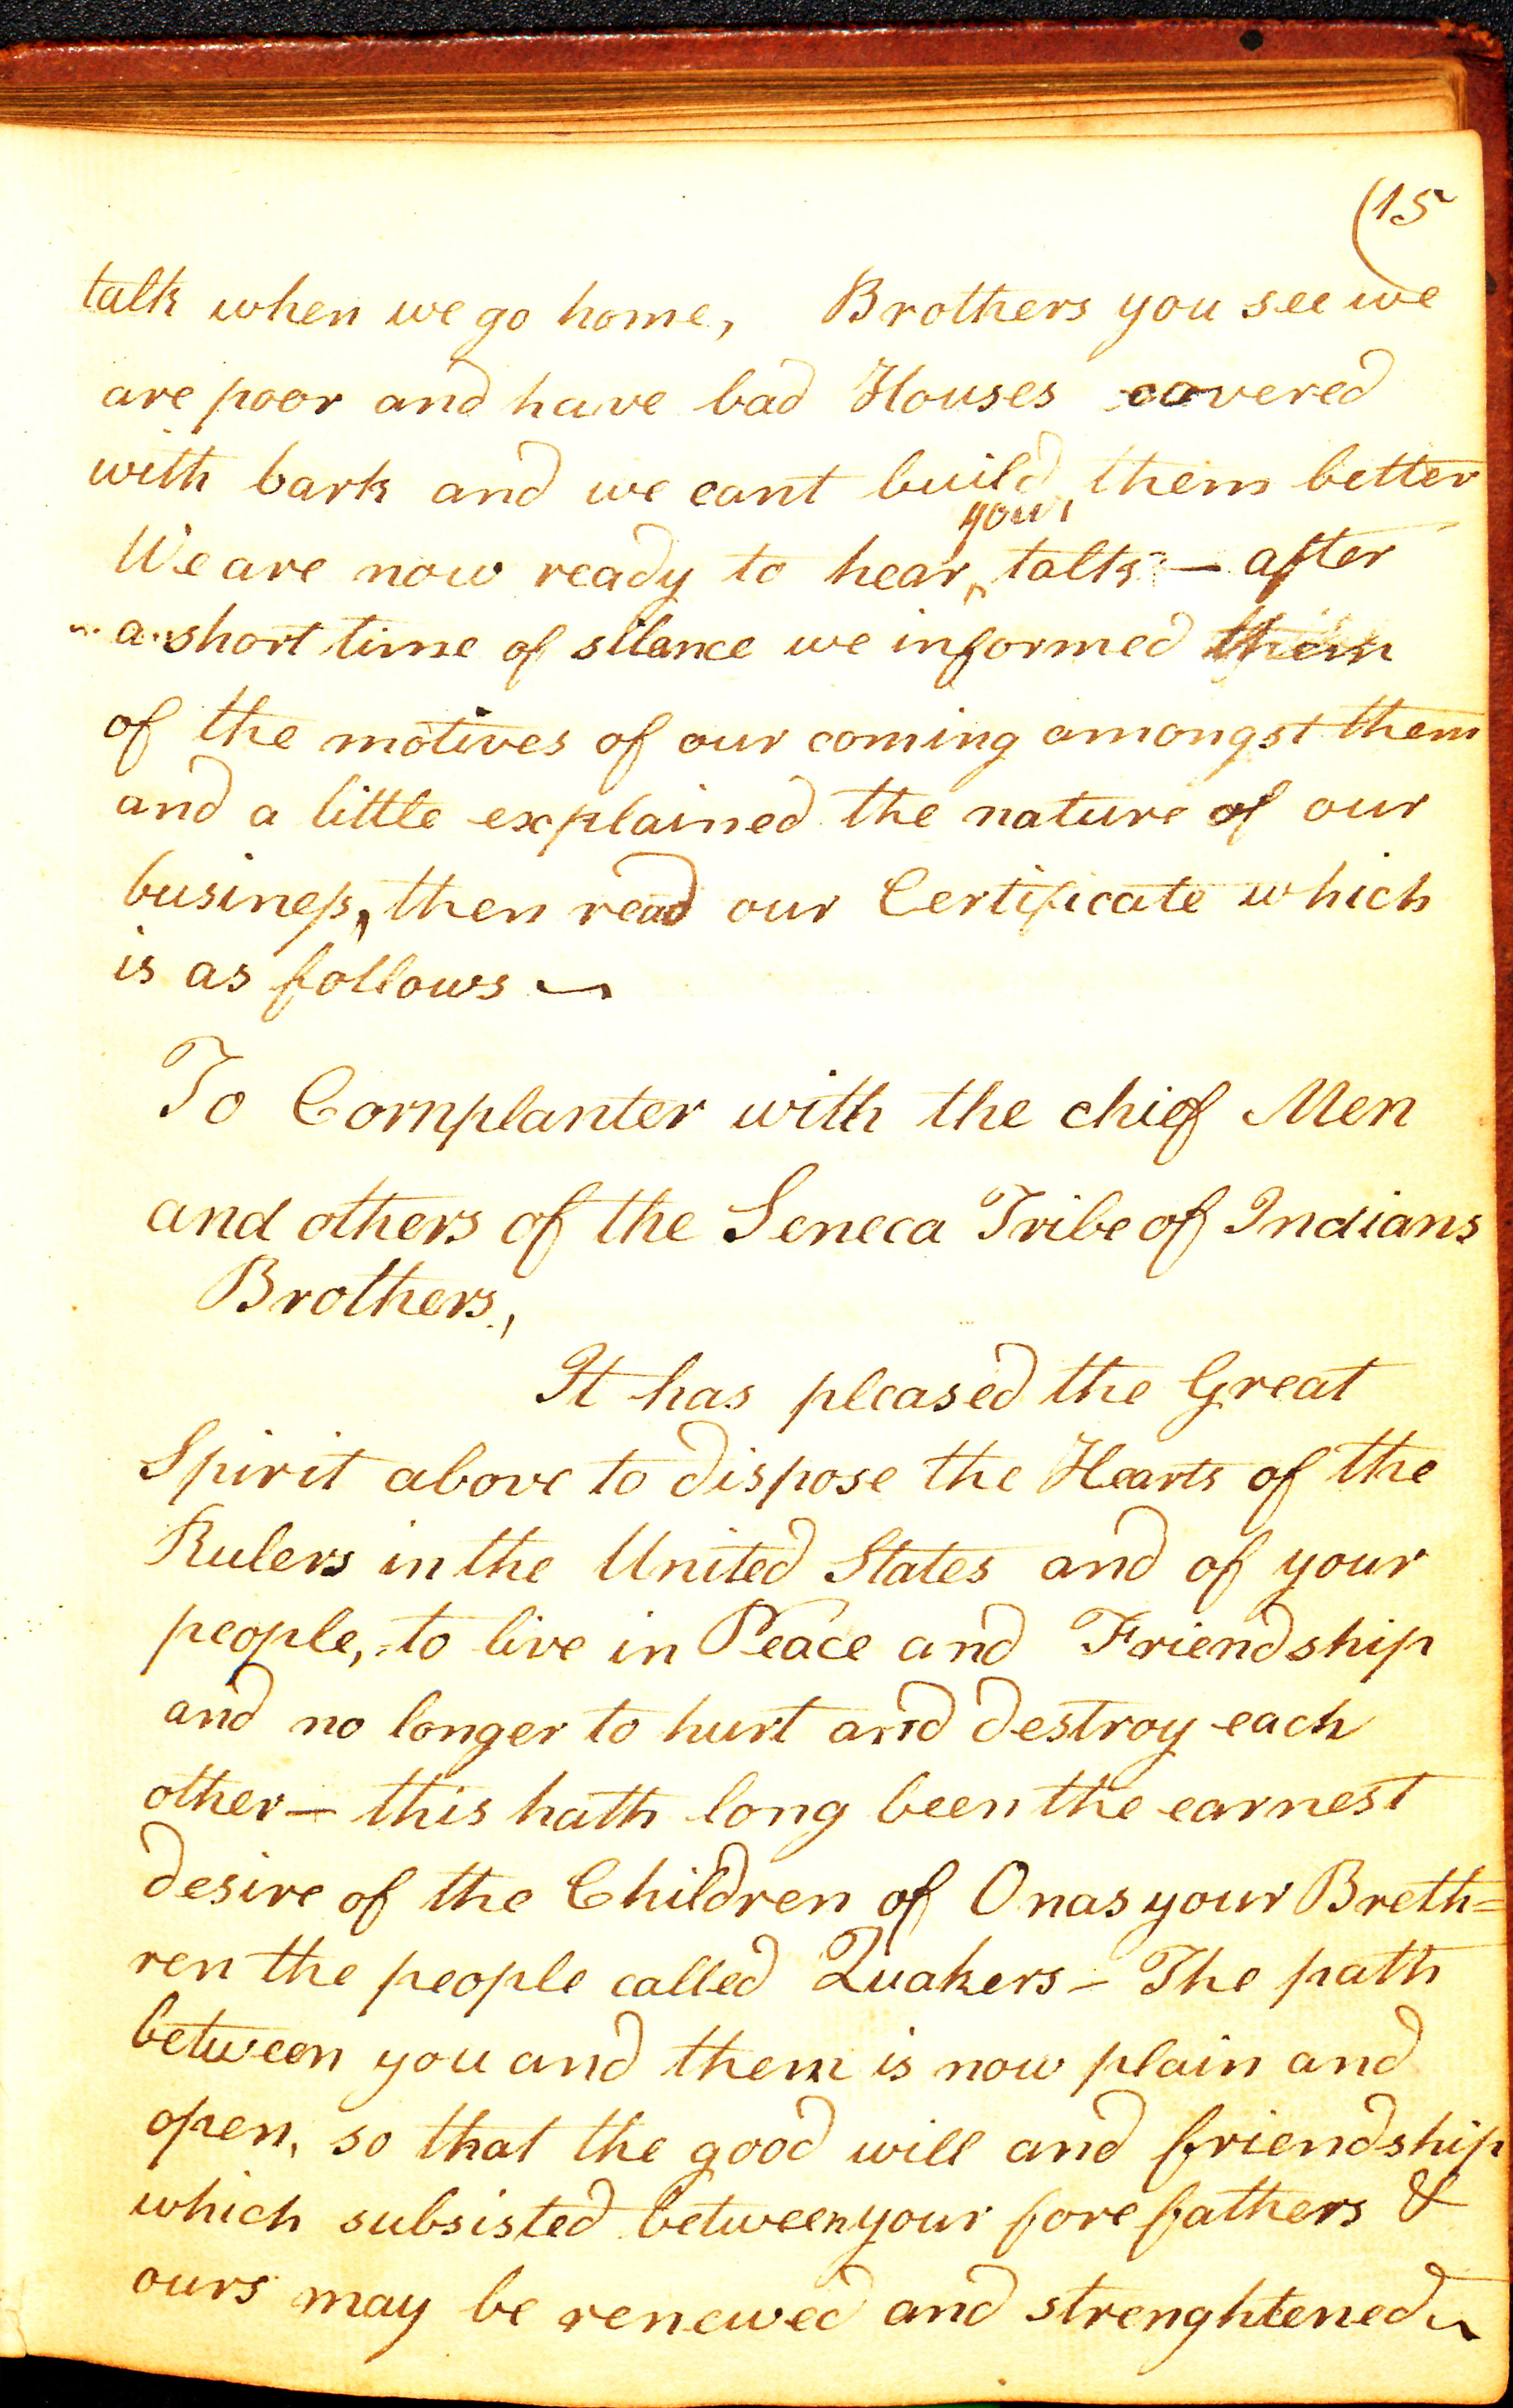 (15
talk when we go home, Brothers you see we
are poor and have bad Houses covered
with bark and we cant build them better
your
We are now ready to hear ^ talk — after
a short time of silance we informed them
of the motives of our coming amongst them
and a little explained the nature of our
business, then read our Certificate which
is as follows —
To Cornplanter with the chief Men
and others of the Seneca Tribe of Indians
Brothers,
It has pleased the Great
Spirit above to dispose the Hearts of the
Rulers in the United States and of your
people, to live in Peace and Friendship
and no longer to hurt and destroy each
other — this hath long been the earnest
desire of the Children of Onas your Breth=
ren the people called Quakers – The path
between you and them is now plain and
open, so that the good will and friendship
which subsisted between your fore fathers &
ours may be renewed and strenghtened